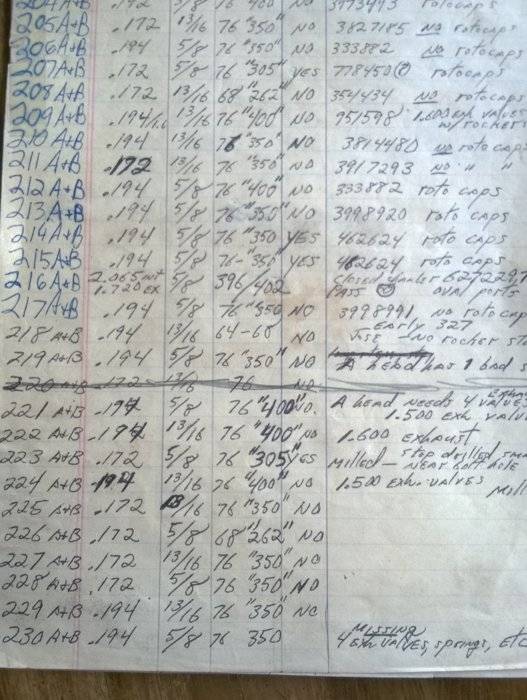 204A+B .192 5/8 76 "400" NO 3973493 rotocaps
205A+B .172 13/16 76 "350" NO 3827185 NO rotocaps
206A+B .194 5/8 76 "350" NO 333882 NO rotocaps
207A+B .172 5/8 76 "305" YES 778450 (?) rotocaps
208A+B .172 13/16 68 "262" NO 354434 NO rotocaps
209A+B .194 13/16 76 "400" NO 951598 1.600 exh VALVES
w/rocker
210A+B .194 13/16 76 "350" NO 3814480 NO roto caps
211A+B .172 13/16 76 "350" NO 3917293 NO " "
212A+B .194 5/8 76 "400" NO 333882 roto caps
213A+B .194 5/8 76 "350" NO 3998920 roto caps
214A+B .194 5/8 76 "350 YES 462624 roto caps
215A+B .194 5/8 76 "350" YES 462624 roto caps
216A+B 2.065 int 5/8 396/402 closed
1.720 EX PASS oval ports
217A+B .194 5/8 76 "350 NO 3998991 NO rotocap
218 A+B .194 13/16 64-68 NO early 327
NO rocker
219 A+B .194 5/8 76 "350" NO A head has 1 bad
220 A+B .172 13/16 76 NO
221 A+B .194 5/8 76 "400" NO. A head needs 4 exhaust valves
1.500 exh. valv
222 A+B .194 13/16 76 "400" NO 1.600 exhaust
223 A+B .172 5/8 76 "305" YES Milled - step drilled
near bolt hole
224 A+B .194 13/16 76 "400" NO 1.500 exh. valves
Mill
225 A+B .172 13/16 76 "350" NO
226 A+B .172 5/8 68 "262" NO
227 A+B .172 13/16 76 "350" NO
228 A+B .172 5/8 76 "350" NO
229 A+B .194 13/16 76 "350" NO
230 A+B .194 5/8 76 350 MISSING
4 exh VALVES, springs, etc